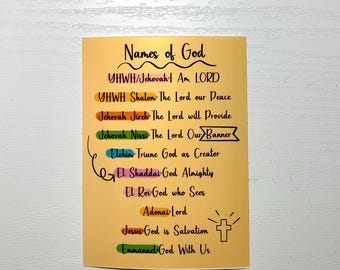 Names of God
YHWH/Jehovah I Am, LORD
YHWH Shalom The Lord our Peace
Jehovah Jireh The Lord will Provide
Jehovah Nissi The Lord Our Banner
Elohim Triune God as Creator
El Shaddai God Almighty
El Roi God who Sees
Adonai Lord
Jesus God is Salvation
Emmanuel God With Us